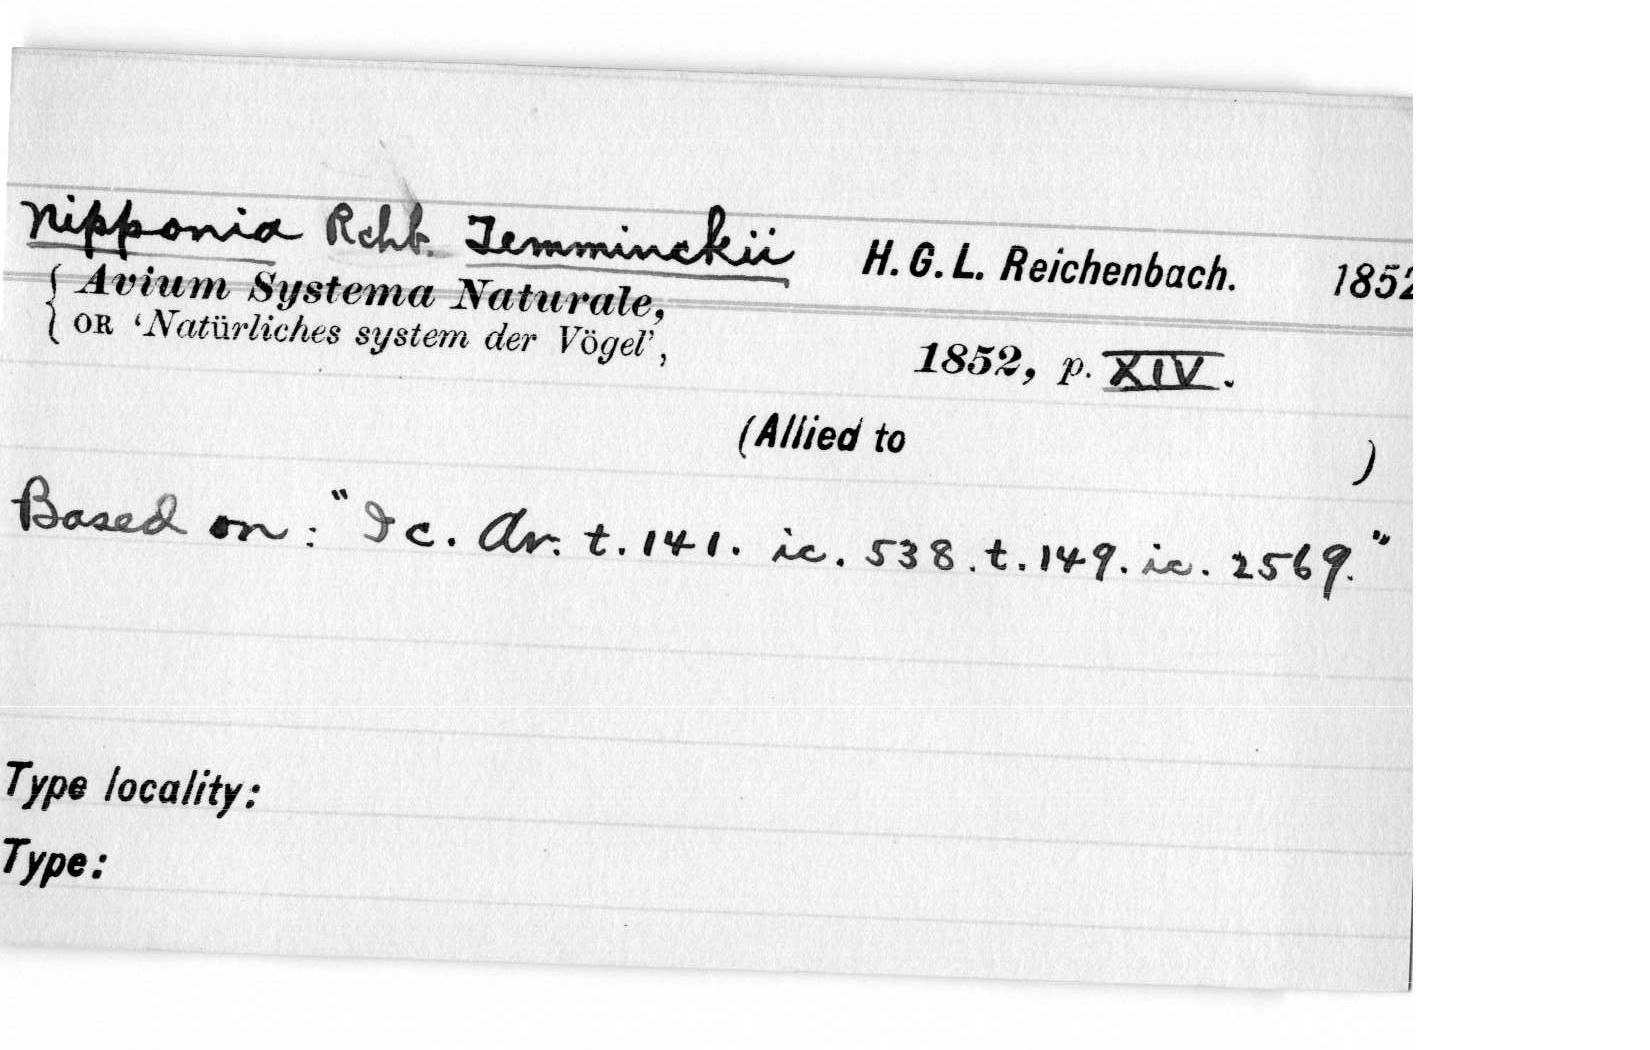 Nipponia Rchb. Temminckii H. G. L. Reichenbach. 1852
{ Avium Systema Naturale,
OR ‘Natürliches system der Vögel’, 1852, p. XIV.
(Allied to )
Based on: "Ic. Av. t. 141. ic. 538. t. 149. ic. 2569."
Type locality:
Type: